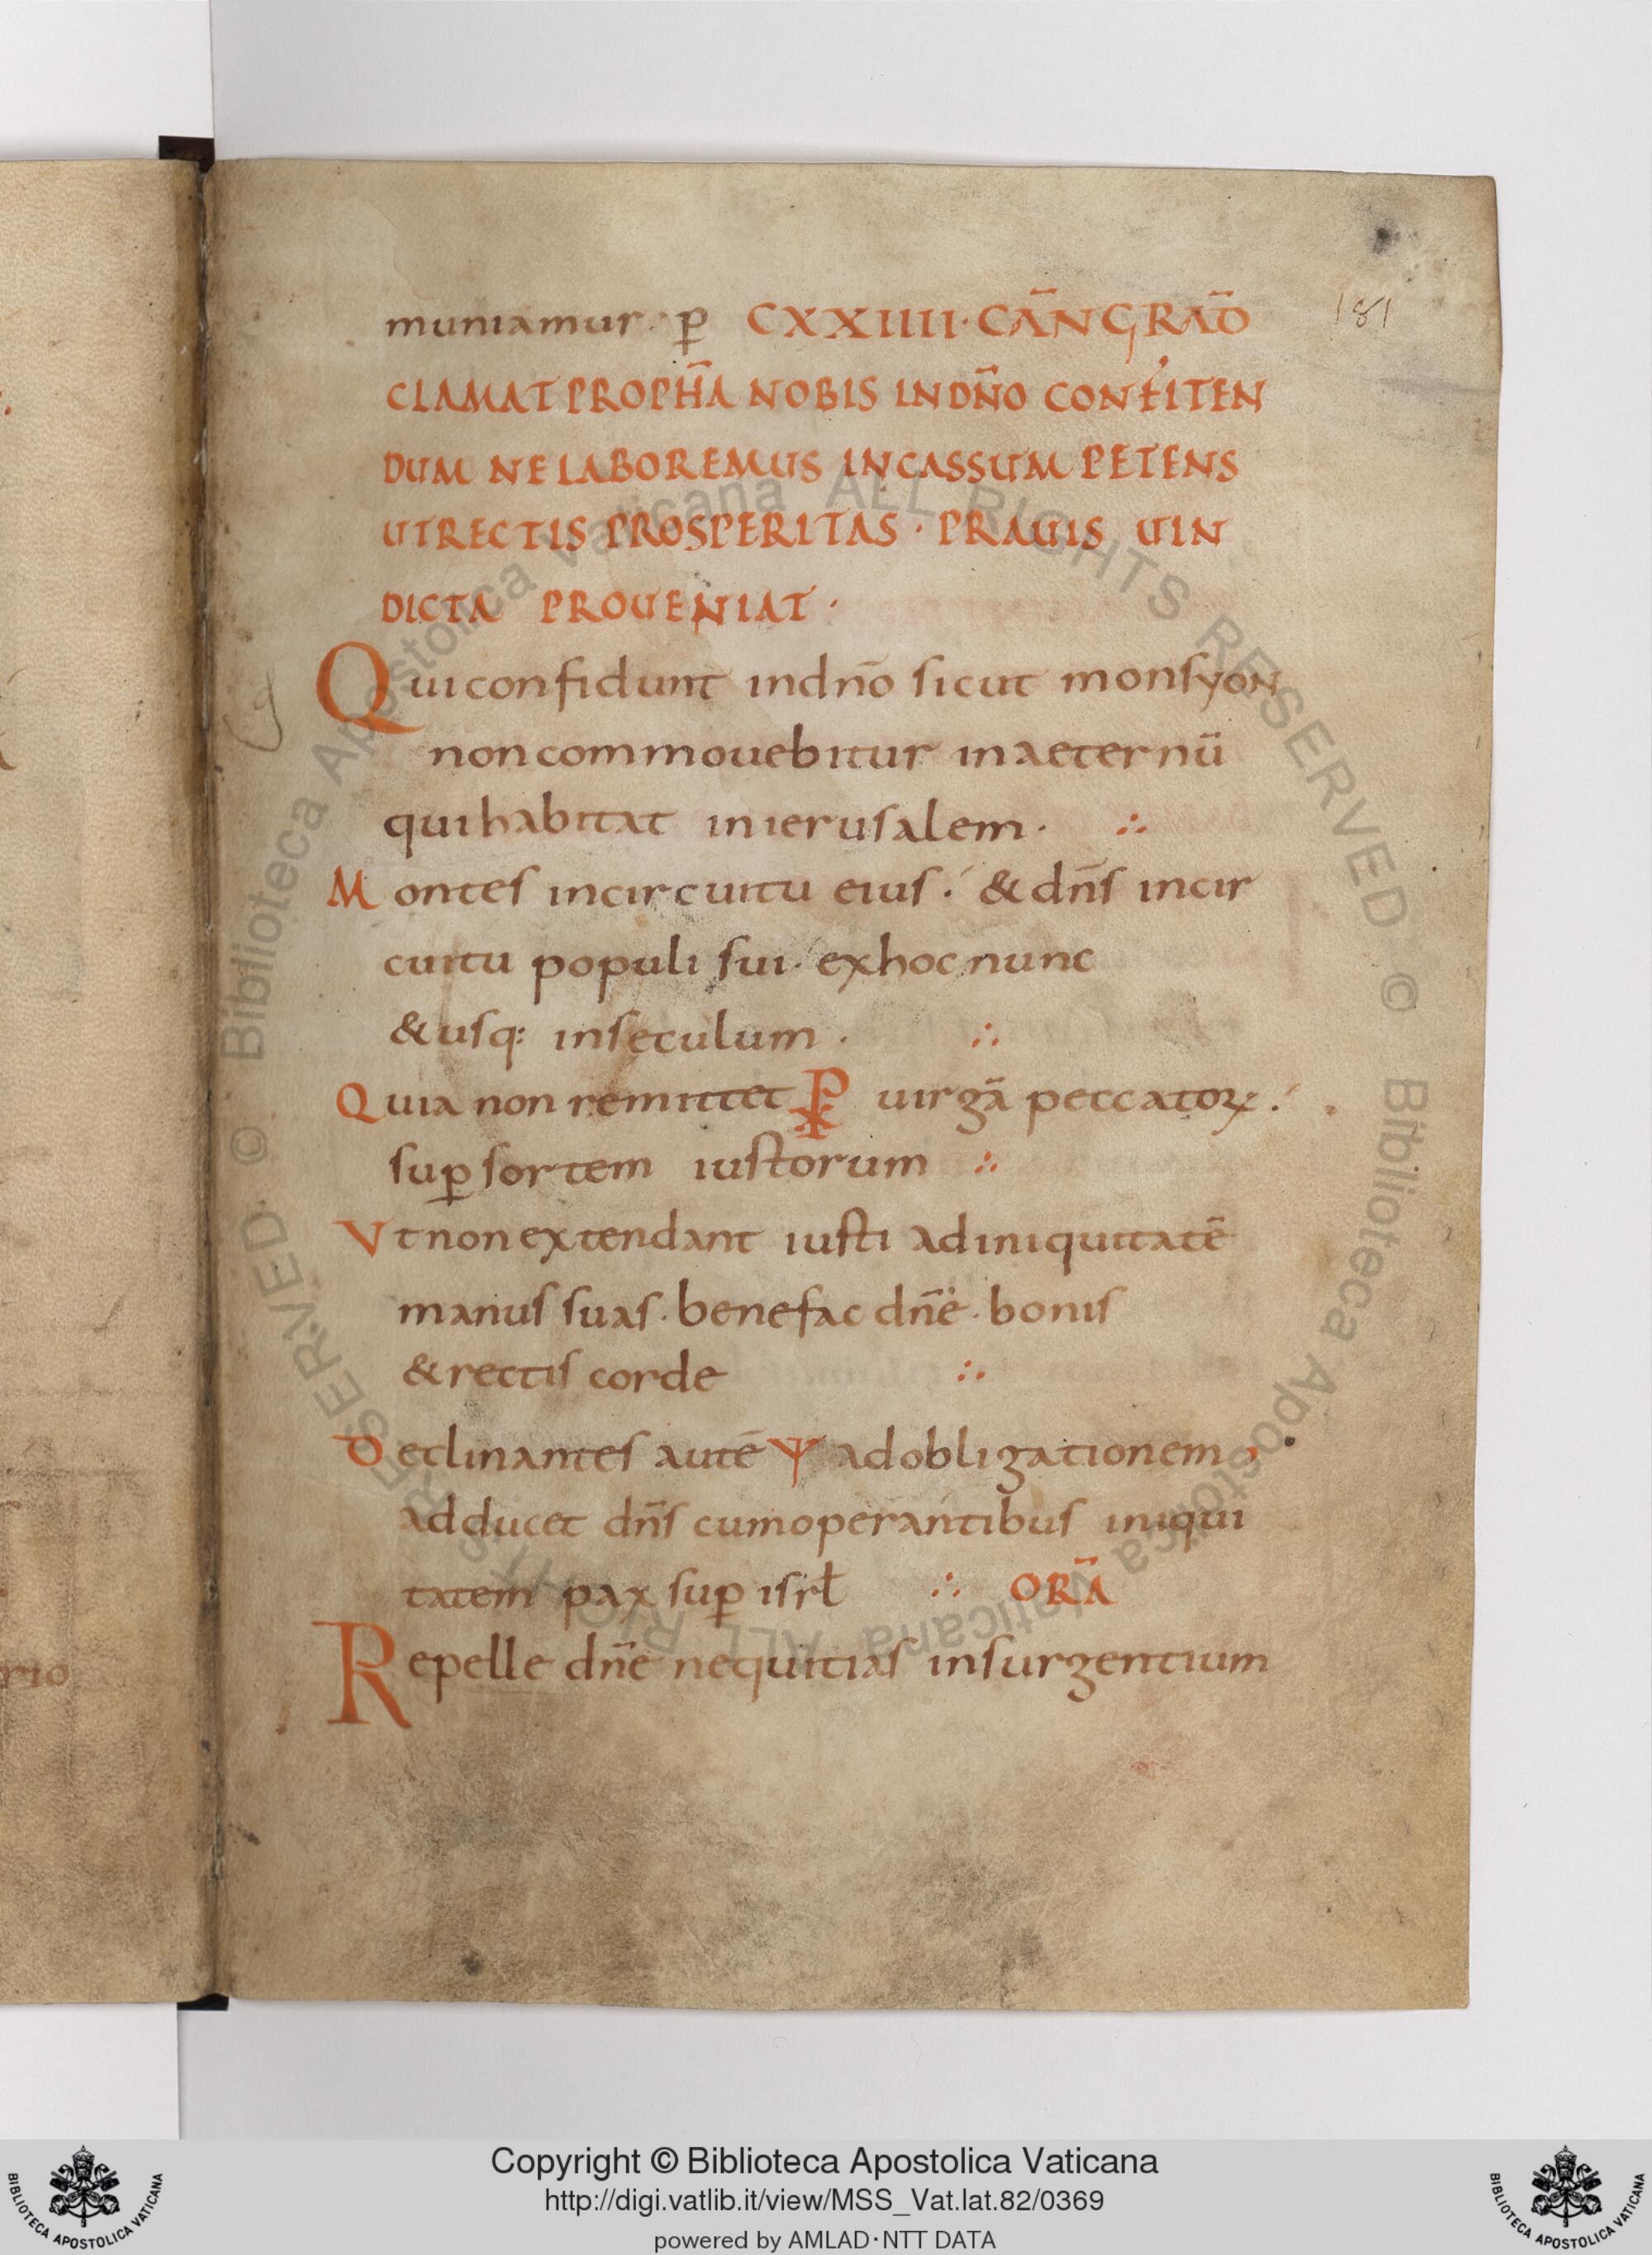 muniamur· ꝑ CXXIIII· CAN̄ GRAD̄
CLAMAT PROPHĀ NOBIS IN DN̄O CONFITEN
DUM NE LABOREMUS INCASSUM PETENS
UT RECTIS PROSPERITAS · PRAUIS UIN
DICTA PROUENIAT ·
181
Qui confidunt in dn̄o sicut mons yon
non commouebitur in aeternū
qui habitat in ierusalem · ∴
Montes in circuitu eius ·́ & dn̄s in cir
cuitu populi sui · ex hoc nunc
& usq: in seculum · ∴
Quia non remittet ⳩ uirgā peccatoꝝ ·́
suꝑ sortem iustorum ∴
Vt non extendant iusti ad iniquitatē
manus suas · benefac dn̄e · bonis
& rectis corde ∴
Declinantes autē Ψ ad obligationem
adducet dn̄s cum operantibus iniqui
tatem pax suꝑ isrł ∴ ORĀ
Repelle dn̄e nequitias insurgentium
rio
© Biblioteca Apostolica Vaticana ALL RIGHTS RESERVED © Biblioteca Apostolica Vaticana ALL RIGHTS RESERVED
Copyright © Biblioteca Apostolica Vaticana
http://digi.vatlib.it/view/MSS_Vat.lat.82/0369
powered by AMLAD·NTT DATA
BIBLIOTECA APOSTOLICA VATICANA
BIBLIOTECA APOSTOLICA VATICANA